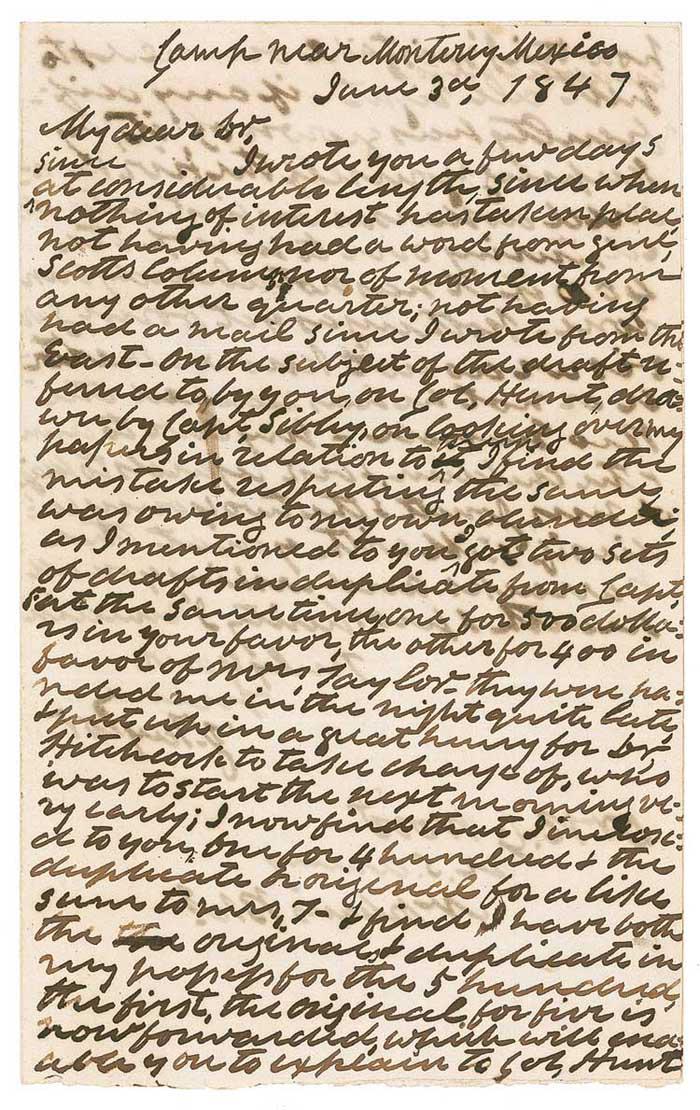 Camp near Monterey Mexico
June 3d, 1847
My dear Dr,
since I wrote you a few days
at considerable length, since when
nothing of interest has taken place
not having had a word from genl,
Scotts Column nor of moment from
any other quarter; not having
had a mail since I wrote from the
East - On the subject of the draft re-
fered to by you, on Col, Hunt, dra-
wn by Capt, Sibley, on looking over my
papers in relation to I find the
mistake respecting the same
was owing to my own blunder;
as I mentioned to you I got two sets
of drafts in duplicate from Capt,
S at the same time, one for 500 dolla-
rs in your favor, the other for 400 in
favor of Mrs, Taylor - they were ha-
nded me in the night quite late
& put up in a great hurry for Dr,
Hitchcock to take charge of, who
was to start the next morning ve-
ry early; I now find that I inclosi-
d to you, one for 4 hundred & the
duplicate original for a like
sum to Mrs, T - & find I have both
the original & duplicate in
my possess for the 5 hundred,
the first, the original for five is
now forwarded, which will ena-
able you to explain to Col, Hunt